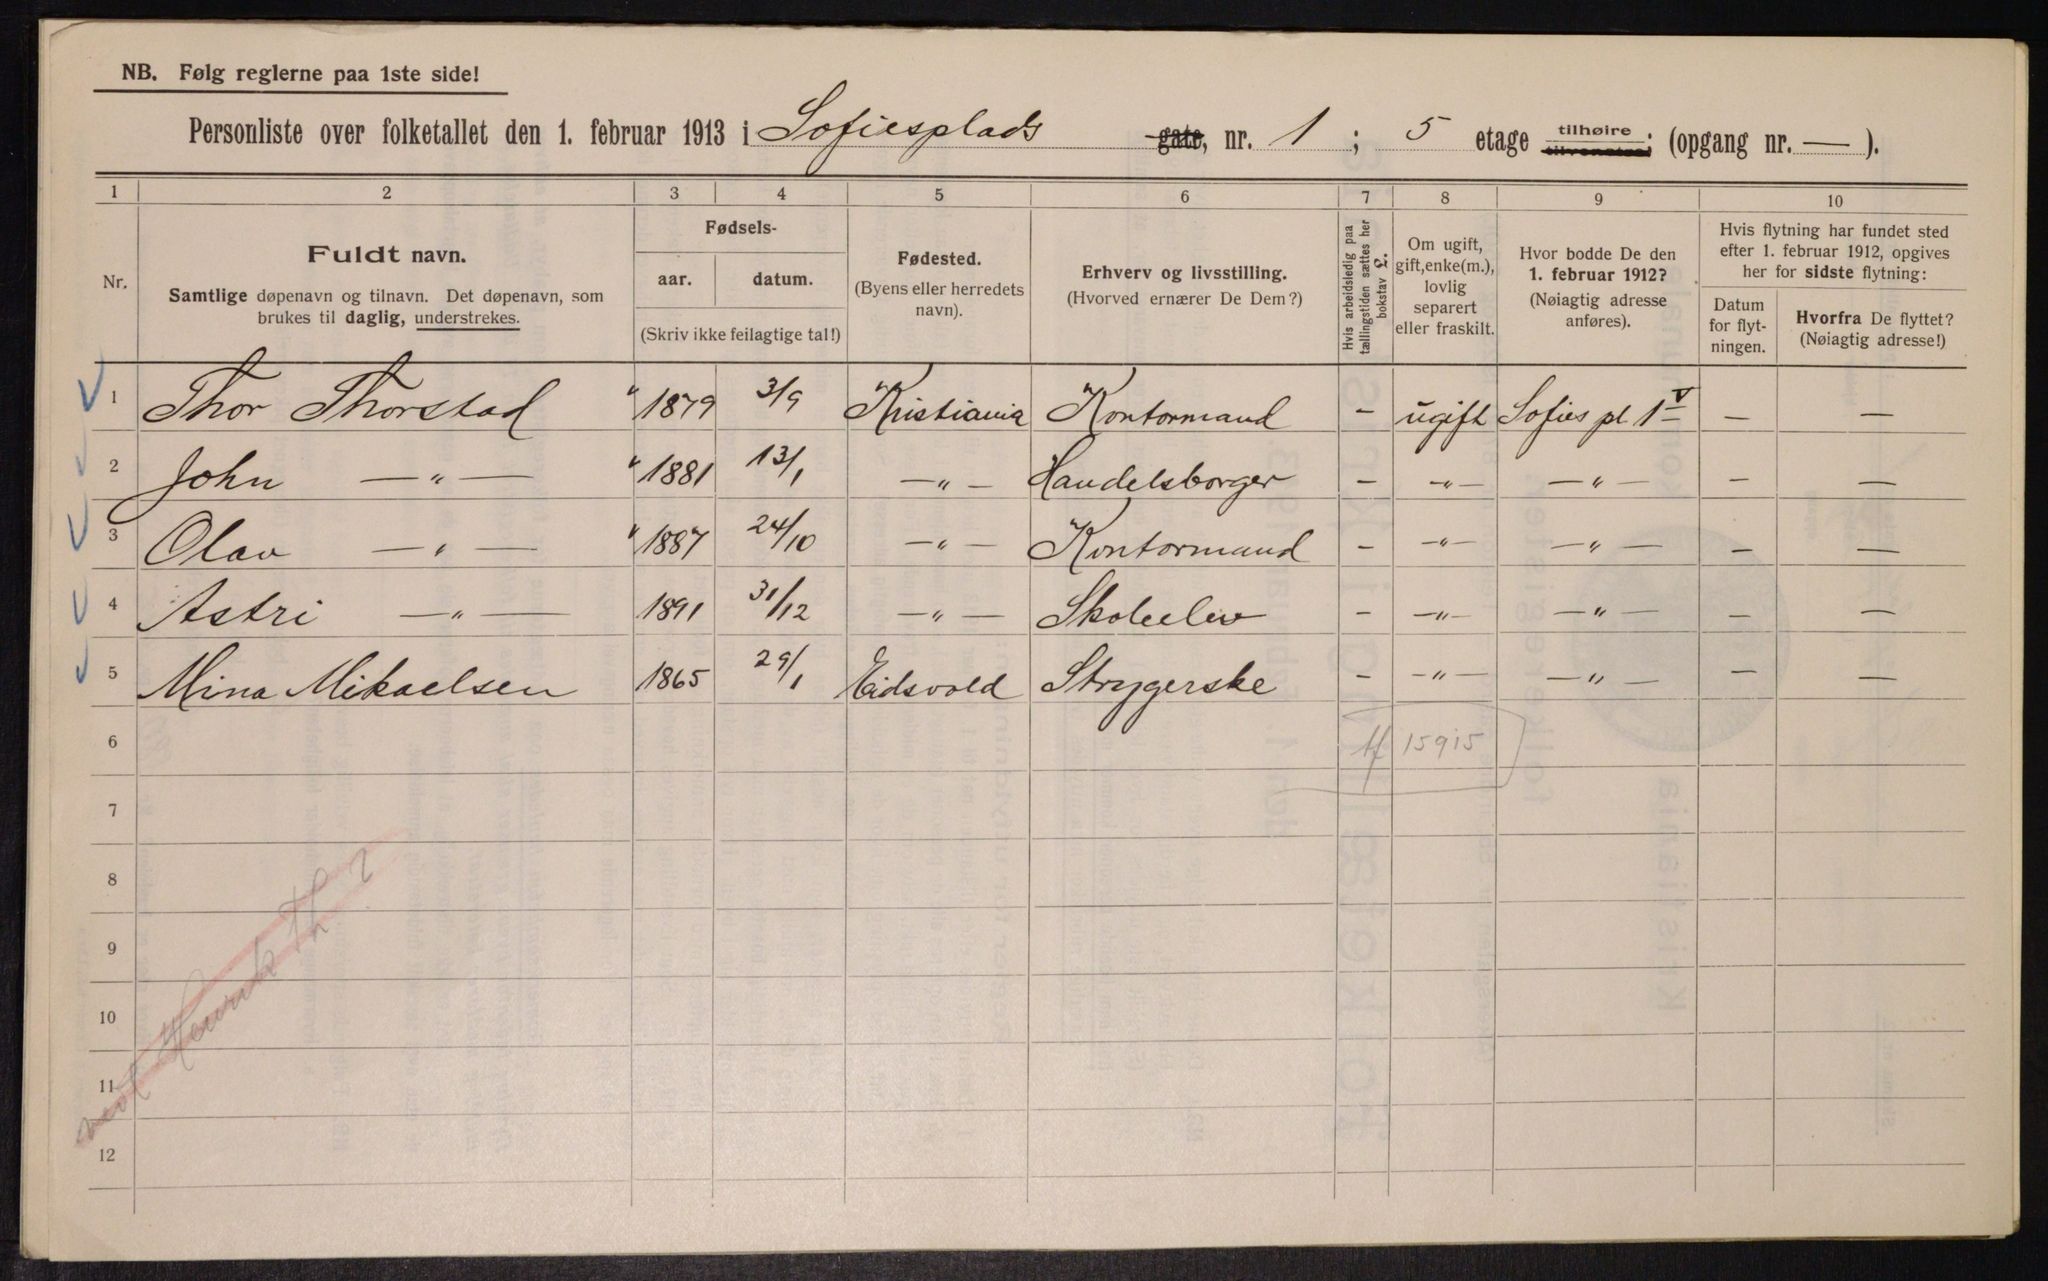 NB. Følg reglerne paa 1ste side!
Personliste over folketallet den 1. februar 1913 i Sofiesplads gate, nr. 1 ; 5 etage tilhøire tilvenstre; (opgang nr. — ).
1 2 3 4 5 6 7 8 9 10
Nr.
Fuldt navn.
Samtlige døpenavn og tilnavn. Det døpenavn, som
brukes til daglig, understrekes.
Fødsels-
aar. datum.
(Skriv ikke feilagtige tal!)
Fødested.
(Byens eller herredets
navn).
Erhverv og livsstilling.
(Hvorved ernærer De Dem?)
Hvis arbeidsledig paa
tællingstiden sættes her
bokstav L.
Om ugift,
gift, enke(m.),
lovlig
separert
eller fraskilt.
Hvor bodde De den
1. februar 1912?
(Nøiagtig adresse
anføres).
Hvis flytning har fundet sted
efter 1. februar 1912, opgives
her for sidste flytning:
Datum
for flyt-
ningen.
Hvorfra De flyttet?
(Nøiagtig adresse!)
1 Thor Thorstad " 1879 3/9 Kristiania Kontormand — ugift Sofies pl 1 V — —
2 John —"— " 1881 13/1 —"— Handelsborger — —"— —"— — —
3 Olav —"— " 1887 24/10 —"— Kontormand — —"— —"— — —
4 Astri —"— 1891 31/12 —"— Skoleelev — —"— —"— — —
5 Mina Mikaelsen 1865 29/1 Eidsvold Strygerske — —"— —"— — —
6 15915
7
8
9
10
11
12
Henrik Th ?